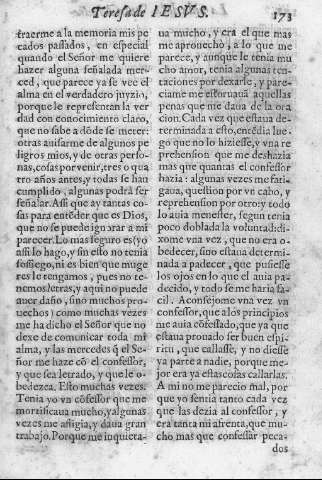 Teresa de IESVS.
173
traerme a la memoria mis pe
cados passados, en especial
quando el Señor me quiere
hazer alguna señalada mer-
ced, que parece ya se vee el
alma en el verdadero juyzio,
porque le representan la ver
dad con conocimiento claro,
que no sabe a dõde se meter:
otras auisarme de algunos pe
ligros mios, y de otras perso-
nas, cosas por venir, tres o qua
tro años antes, y todas se han
cumplido, algunas podrà ser
señalar. Assi que ay tantas co-
sas para entẽder que es Dios,
que no se puede ignorar a mi
parecer. Lo mas seguro es (yo
assi lo hago, y sin esto no tenia
sossiego, ni es bien que muge
res le tengamos, pues no te-
nemos letras, y aqui no puede
auer daño, sino muchos pro-
uechos) como muchas vezes
me ha dicho el Señor que no
dexe de comunicar toda mi
alma, y las mercedes q̃ el Se-
ñor me haze cõ el confessor,
y que sea letrado, y que le o-
bedezca. Esto muchas vezes.
Tenia yo vn cõfessor que me
mortificaua mucho, y algunas
vezes me afligia, y daua gran
trabajo. Porque me inquieta-
ua mucho, y era el que mas
me aprouechò, a lo que me
parece, y aunque le tenia mu
cho amor, tenia algunas ten-
taciones por dexarle, y pare-
ciame me estoruauã aquellas
penas que me daua de la ora
cion. Cada vez que estaua de-
terminada a esto, entẽdia lue-
go que no lo hiziesse, y vna re
prehension que me deshazia
mas que quantas el confessor
hazia: algunas vezes me fati-
gaua, question por vn cabo, y
reprehension por otro: y todo
lo auia menester, segun tenia
poco doblada la voluntad: di-
xome vna vez, que no era o-
bedecer, sino estaua determi-
nada a padecer, que pusiesse
los ojos en lo que el auia pa-
decido, y todo se me haria fa-
cil. Aconsejome vna vez vn
confessor, que a los principios
me auia cõfessado, que ya que
estaua prouado ser buen espi-
ritu, que callasse, y no diesse
ya parte a nadie, porque me-
jor era ya estas cosas callarlas.
A mi no me parecio mal, por
que yo sentia tanto cada vez
que las dezia al confessor, y
era tanta mi afrenta, que mu-
cho mas que confessar peca-
dos